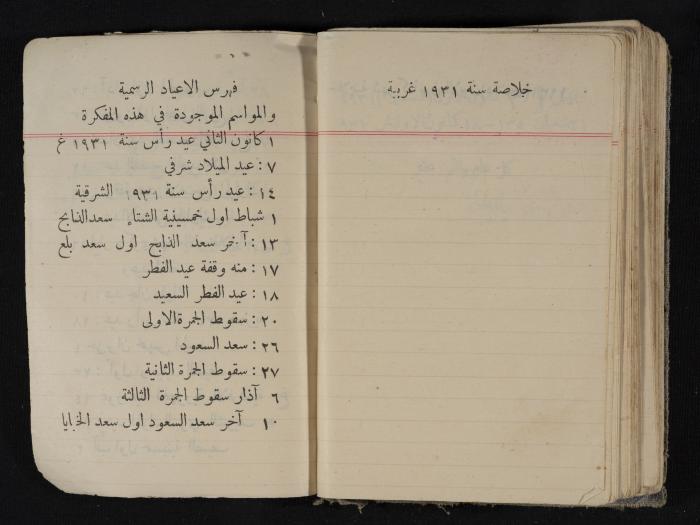 خلاصة سنة ١٩٣١ غربية
فهرس الاعياد الرسمية
والمواسم الموجودة في هذه المفكرة
١ كانون الثاني عيد رأس سنة ١٩٣١ غ
٧ : عيد الميلاد شرفي
١٤ : عيد رأس سنة ١٩٣١ الشرقية
١ شباط اول خمسينية الشتاء سعدالذابح
١٣ : آخر سعد الذابح اول سعد بلع
١٧ : منه وقفة عيد الفطر
١٨ : عيد الفطر السعيد
٢٠ : سقوط الجمرة الاولى
٢٦ : سعد السعود
٢٧ : سقوط الجمرة الثانية
٦ آذار سقوط الجمرة الثالثة
١٠ آخر سعد السعود اول سعد الخبايا